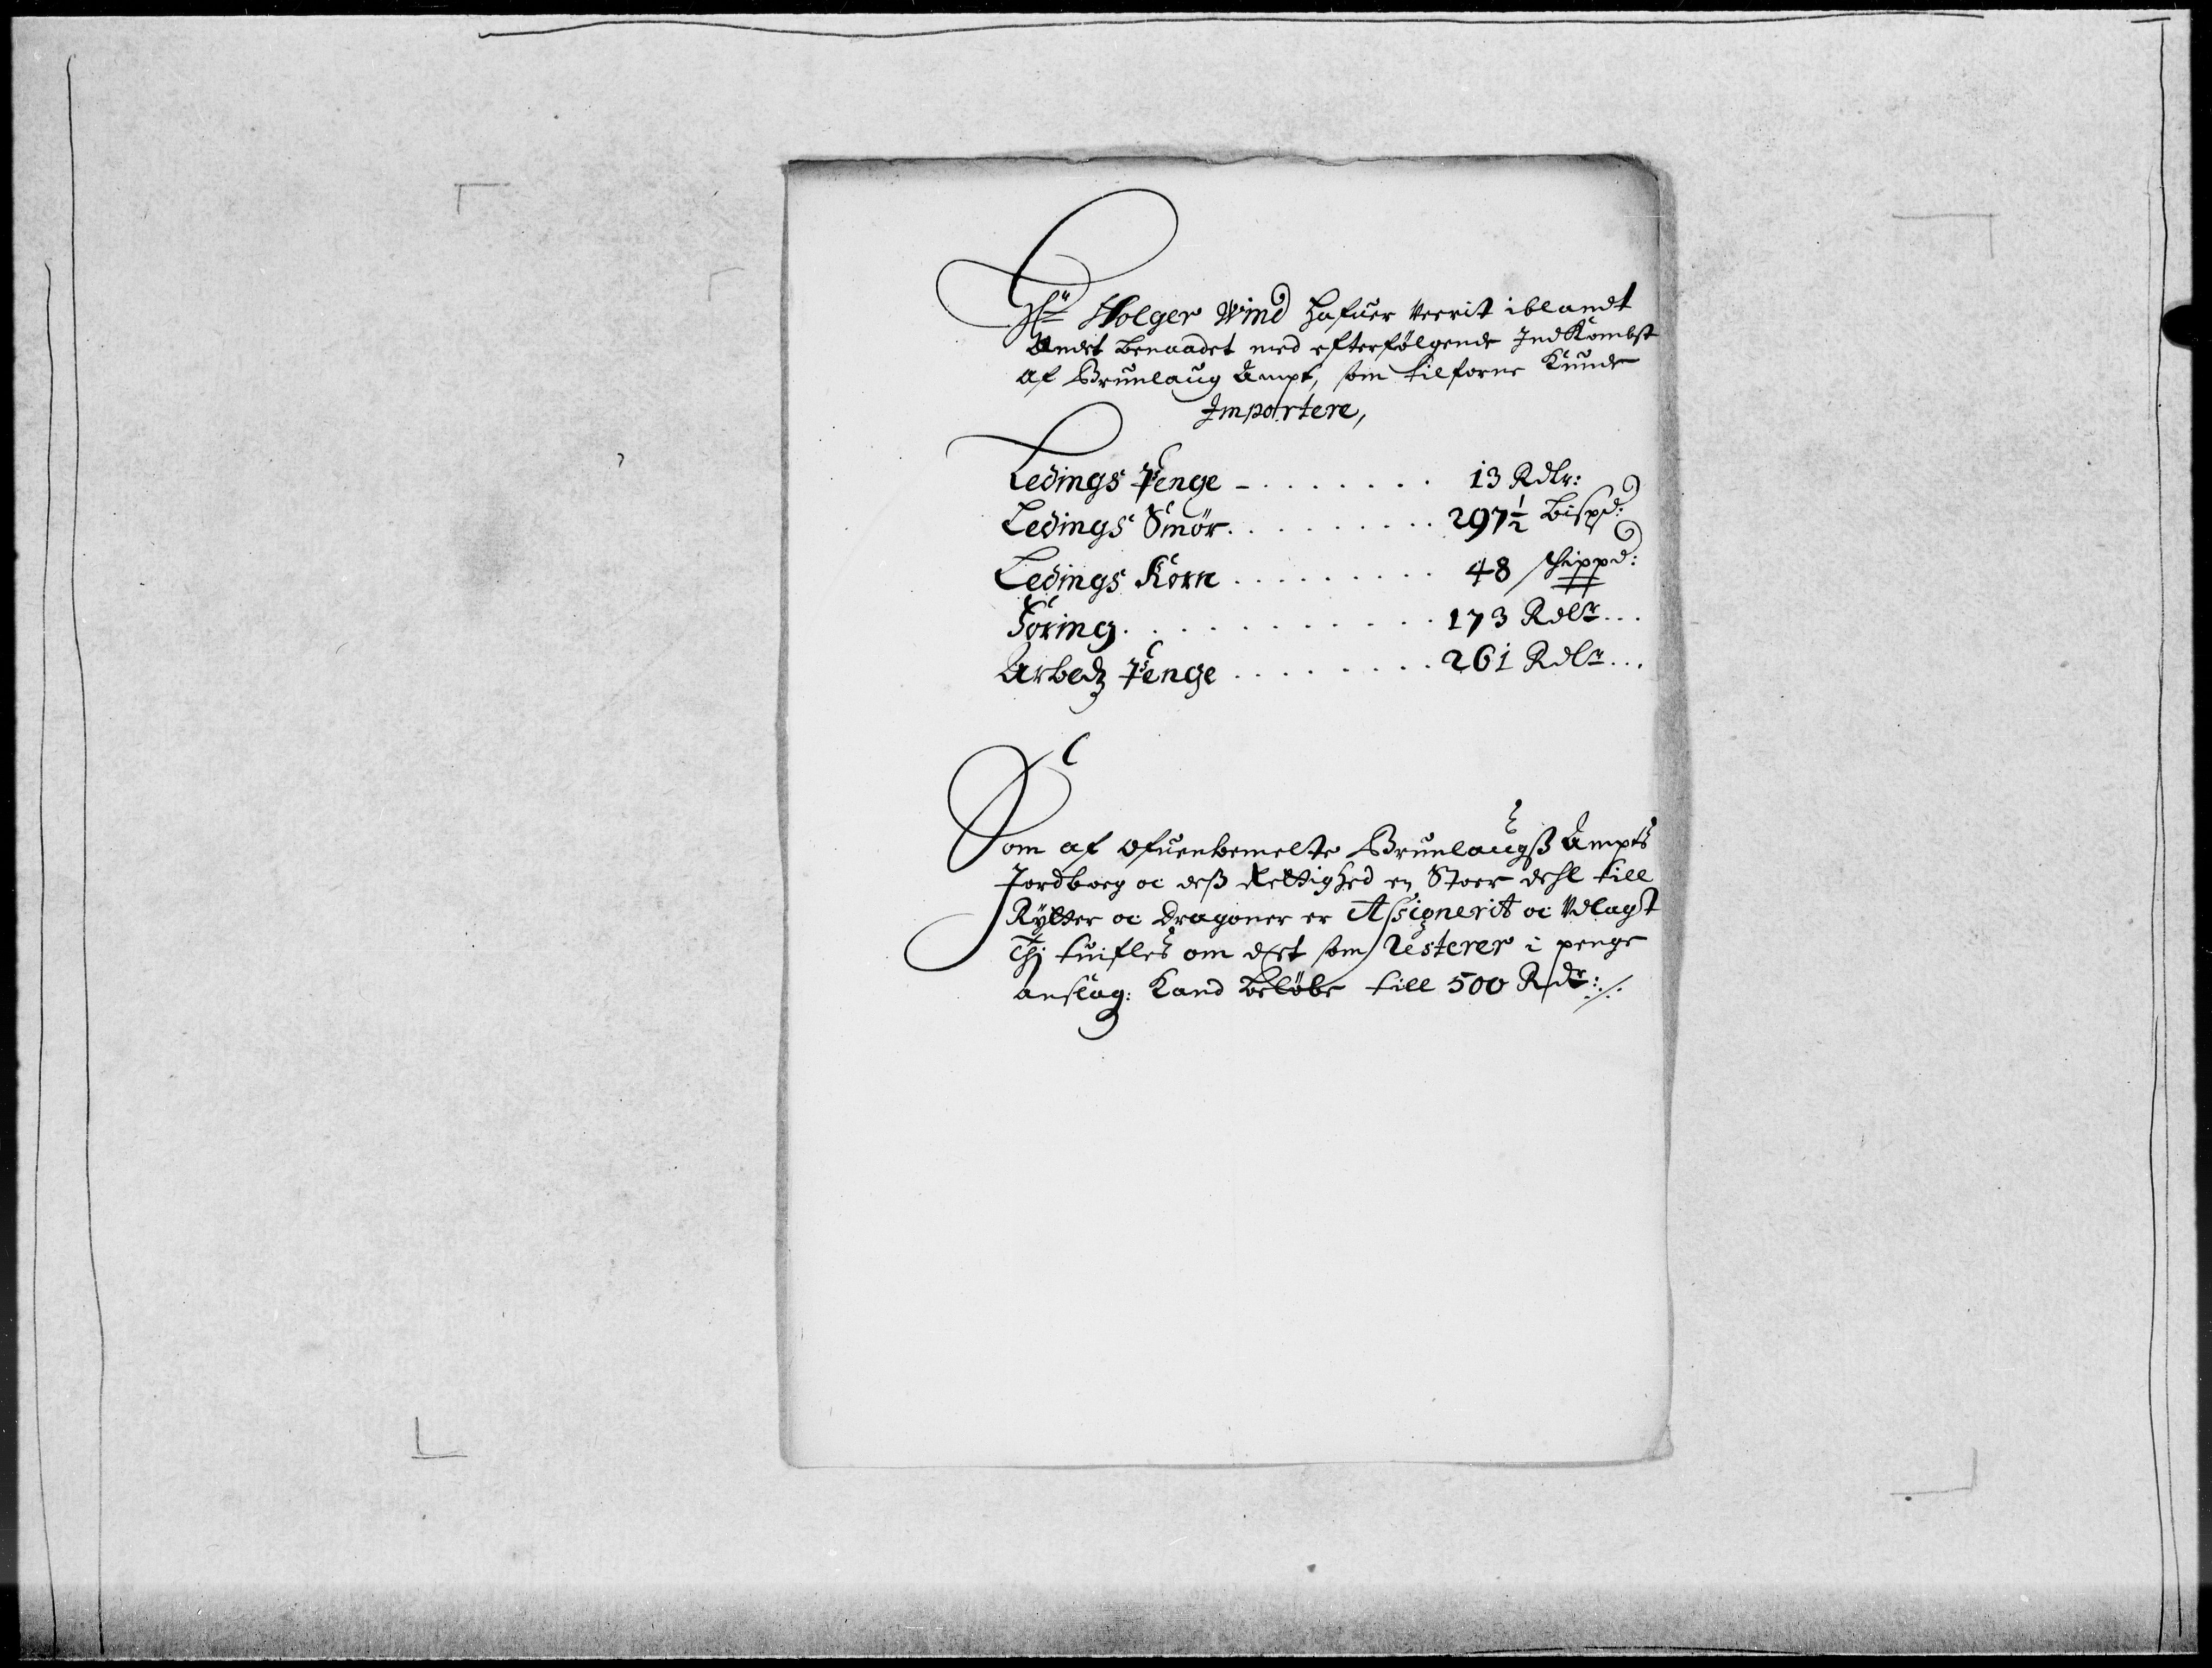 Hr Holger Wind hafuer werit iblandt
Andet benaadet med efterfølgende Indkombst
af Brunlaug Ampt, som tilforne kunde
Importere,
Ledings Penge - . . . . . . . 13 Rdlr:
Ledings Smör . . . . . . . . 297½ Bispd:
Ledings Korn . . . . . . . . 48 skippd:
Föring . . . . . . . . . . . 173 Rdlr...
Arbedz Penge . . . . . . . . 261 Rdlr...
Som af ofuenbemelte Brunlaugß Ampts
Jordbog oc deß Rettighed en Stoer dehl till
Rytter oc Dragoner er Assignerit oc Vdlagt
Thj tuifles om det som Resterer i penge
anslag: kand beløbe till 500 Rdr:/.